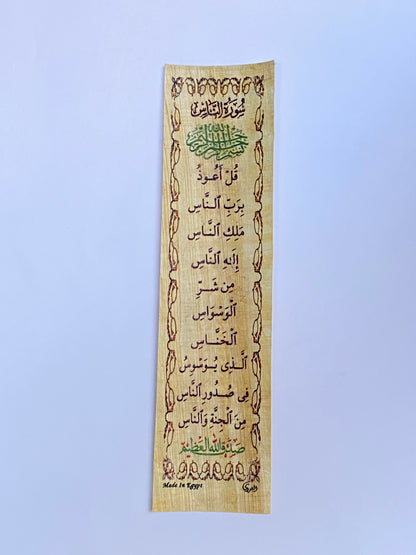 سُورَةُ النَّاسِ
بسم الله الرحمن الرحيم
قُلْ أَعُوذُ
بِرَبِّ ٱلنَّاسِ
مَلِكِ ٱلنَّاسِ
إِلَٰهِ ٱلنَّاسِ
مِن شَرِّ
ٱلْوَسْوَاسِ
ٱلْخَنَّاسِ
ٱلَّذِى يُوَسْوِسُ
فِى صُدُورِ ٱلنَّاسِ
مِنَ ٱلْجِنَّةِ وَٱلنَّاسِ
صَدَقَ اللهُ العَظِيم
Made In Egypt